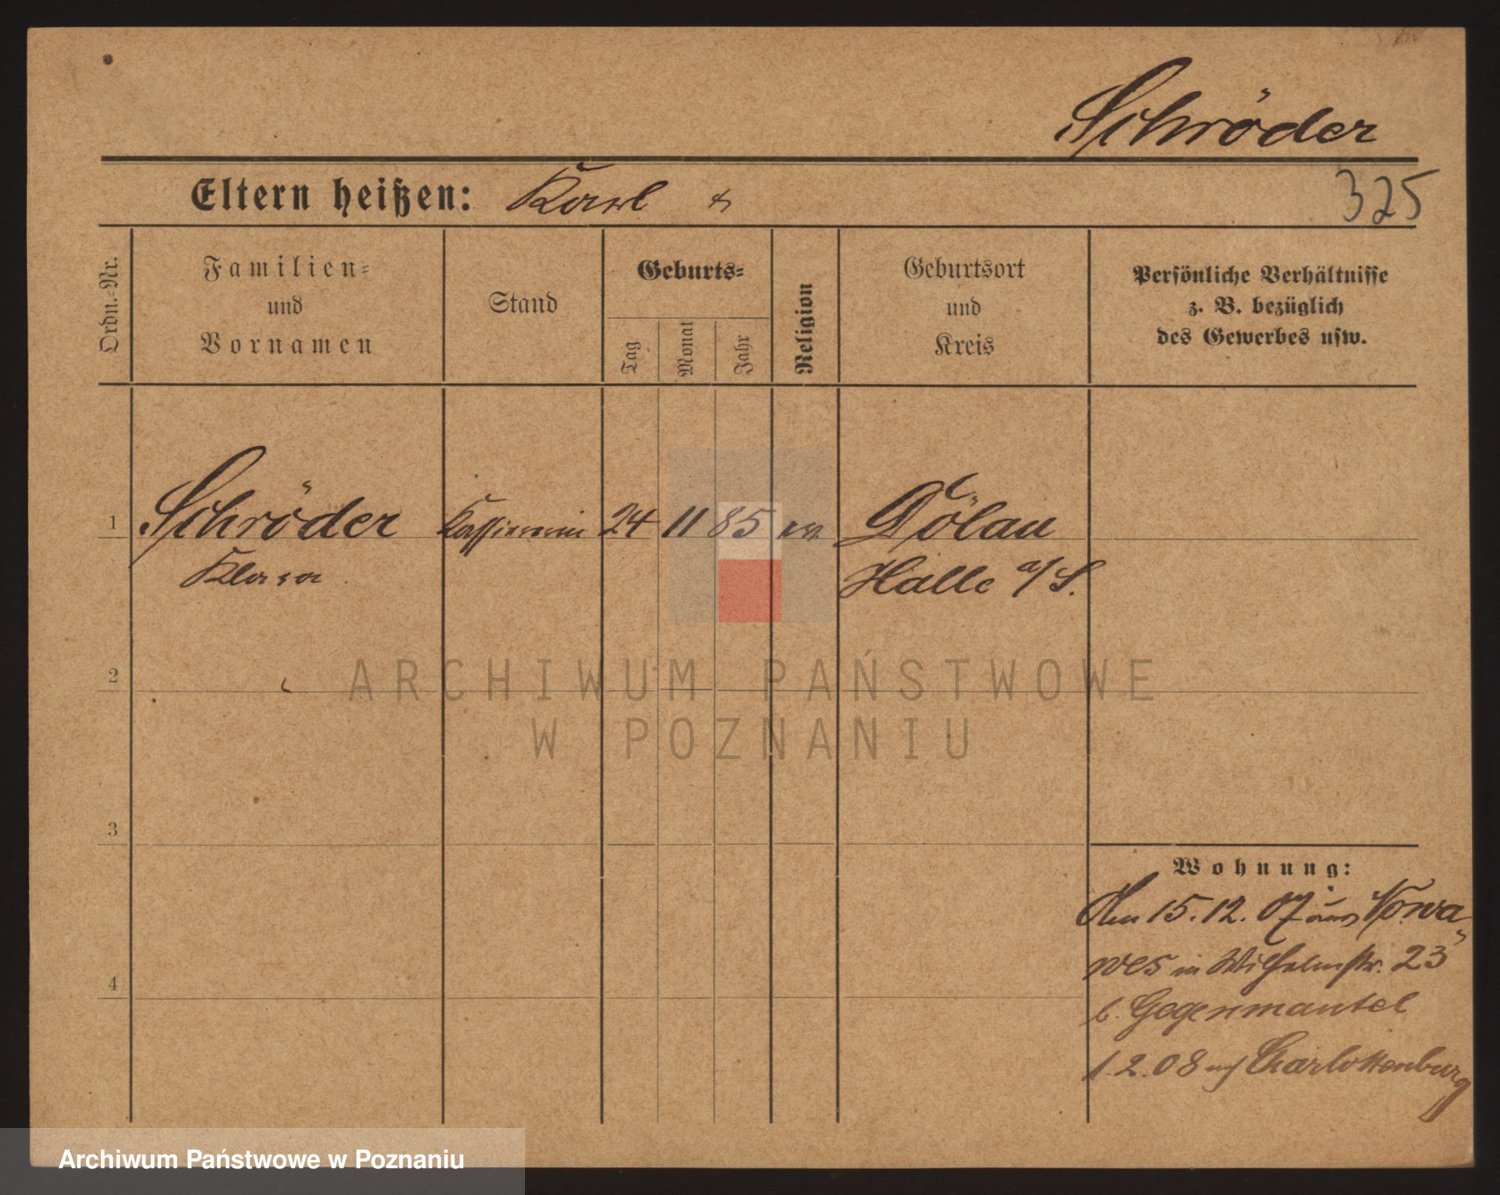 Schröder
Eltern heißen: Karl
325
Ordn.-Nr.
Familien-
und
Vornamen
Stand
Geburts-
Tag
Monat
Jahr
Religion
Geburtsort
und
Kreis
Persönliche Verhältnisse
z. B. bezüglich
des Gewerbes usw.
1 Schröder Kassiererin 24 11 85 ev. Dölau
Klara Halle a/S.
2
ARCHIWUM PAŃSTWOWE
W POZNANIU
3
Wohnung:
Am 15.12.07 aus Nowa-
wes in Wilhelmstr. 23
4
b. Gegenmantel
1.2.08 nach Charlottenburg
Archiwum Państwowe w Poznaniu